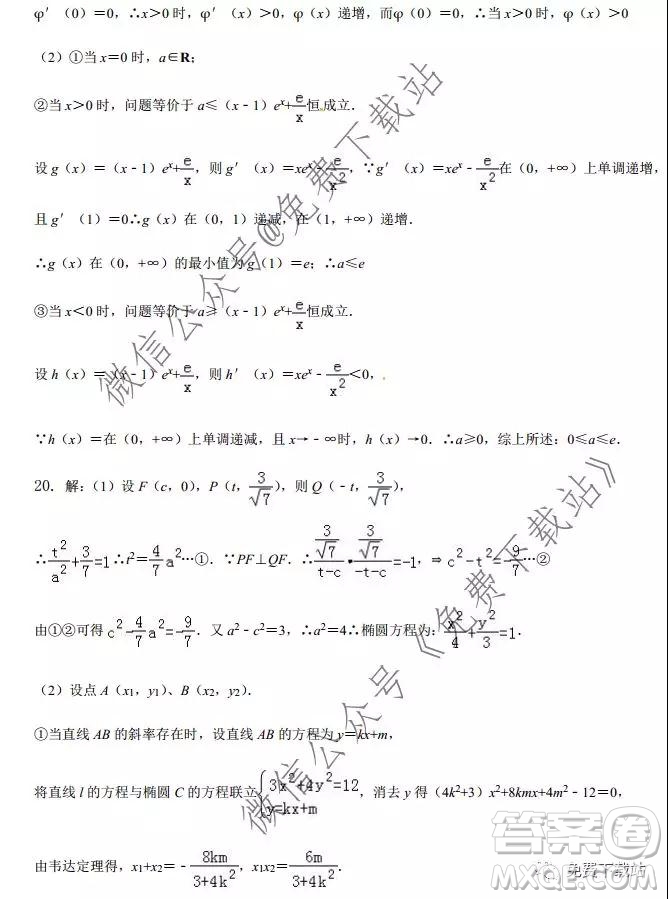 φ′（0）=0，∴x＞0时，φ′（x）＞0，φ（x）递增，而φ（0）=0，∴当x＞0时，φ（x）＞0
（2）①当x＝0时，a∈R；
②当x＞0时，问题等价于a≤（x﹣1）e^x+e/x恒成立．
设g（x）＝（x﹣1）e^x+e/x，则g′（x）=xe^x﹣e/x^2，∵g′（x）=xe^x﹣e/x^2在（0，+∞）上单调递增，
且g′（1）=0∴g（x）在（0，1）递减，在（1，+∞）递增．
∴g（x）在（0，+∞）的最小值为g（1）=e；∴a≤e
③当x＜0时，问题等价于a≥（x﹣1）e^x+e/x恒成立．
设h（x）＝（x﹣1）e^x+e/x，则h′（x）=xe^x﹣e/x^2＜0，
∵h（x）＝在（0，+∞）上单调递减，且x→﹣∞时，h（x）→0．∴a≥0，综上所述：0≤a≤e．
20．解：（1）设F（c，0），P（t，3/√7），则Q（﹣t，3/√7），
∴t^2/a^2+3/7=1∴t^2＝4/7a^2…①．∵PF⊥QF．∴(3/√7)/(t-c)•(3/√7)/(-t-c)=-1，⇒c^2-t^2=-9/7…②
由①②可得c^2-4/7a^2=-9/7．又a^2﹣c^2＝3，∴a^2＝4∴椭圆方程为：x^2/4+y^2/3=1．
（2）设点A（x1，y1）、B（x2，y2）．
①当直线AB的斜率存在时，设直线AB的方程为y＝kx+m，
将直线l的方程与椭圆C的方程联立{3x^2+4y^2=12，y=kx+m，消去y得（4k^2+3）x^2+8kmx+4m^2﹣12＝0，
由韦达定理得，x1+x2＝﹣8km/3+4k^2，x1x2＝6m/3+4k^2．
微信公众号@免费下载站
微信公众号《免费下载站》
答案卷
免费下载站